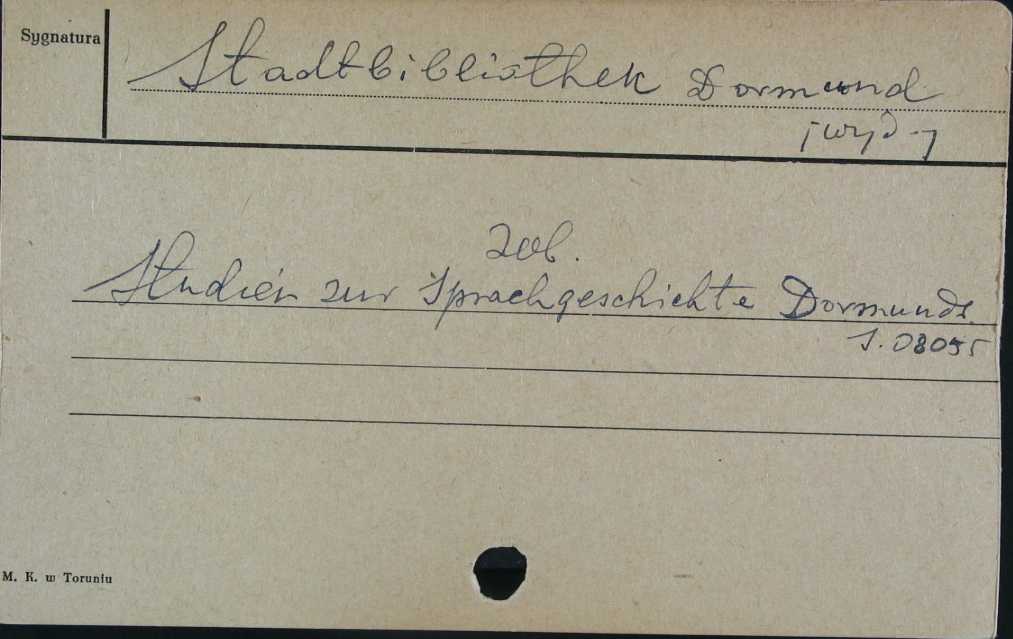 Sygnatura
Stadtbibliothek Dormund
[wyd.]
zob.
Studien zur Sprachgeschichte Dormunds.
S. 08055
M. K. w Toruniu